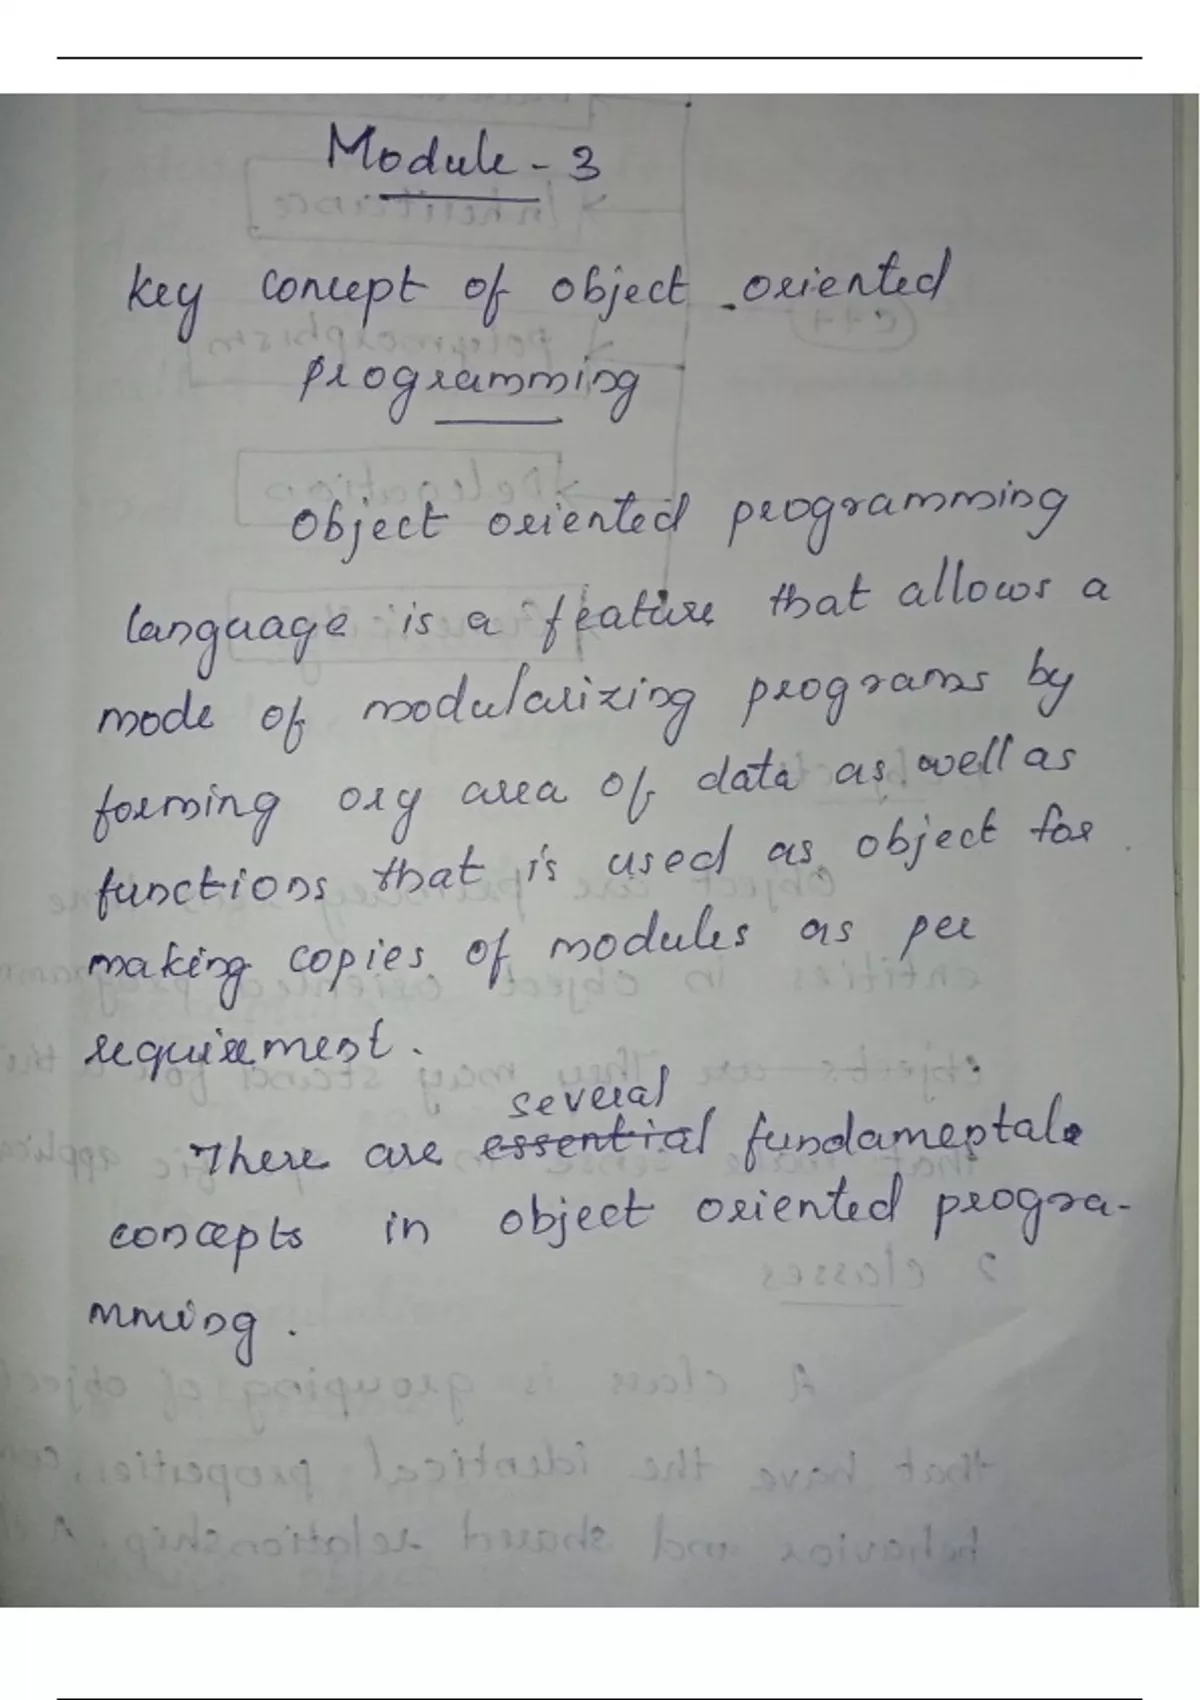 Module - 3
key concept of object oriented
programming
Object oriented programming
language is a feature that allows a
mode of modularizing programs by
forming org area of data as well as
functions that is used as object for
making copies of modules as per
requirement.
several
There are essential fundamental
concepts in object oriented progra-
mming.